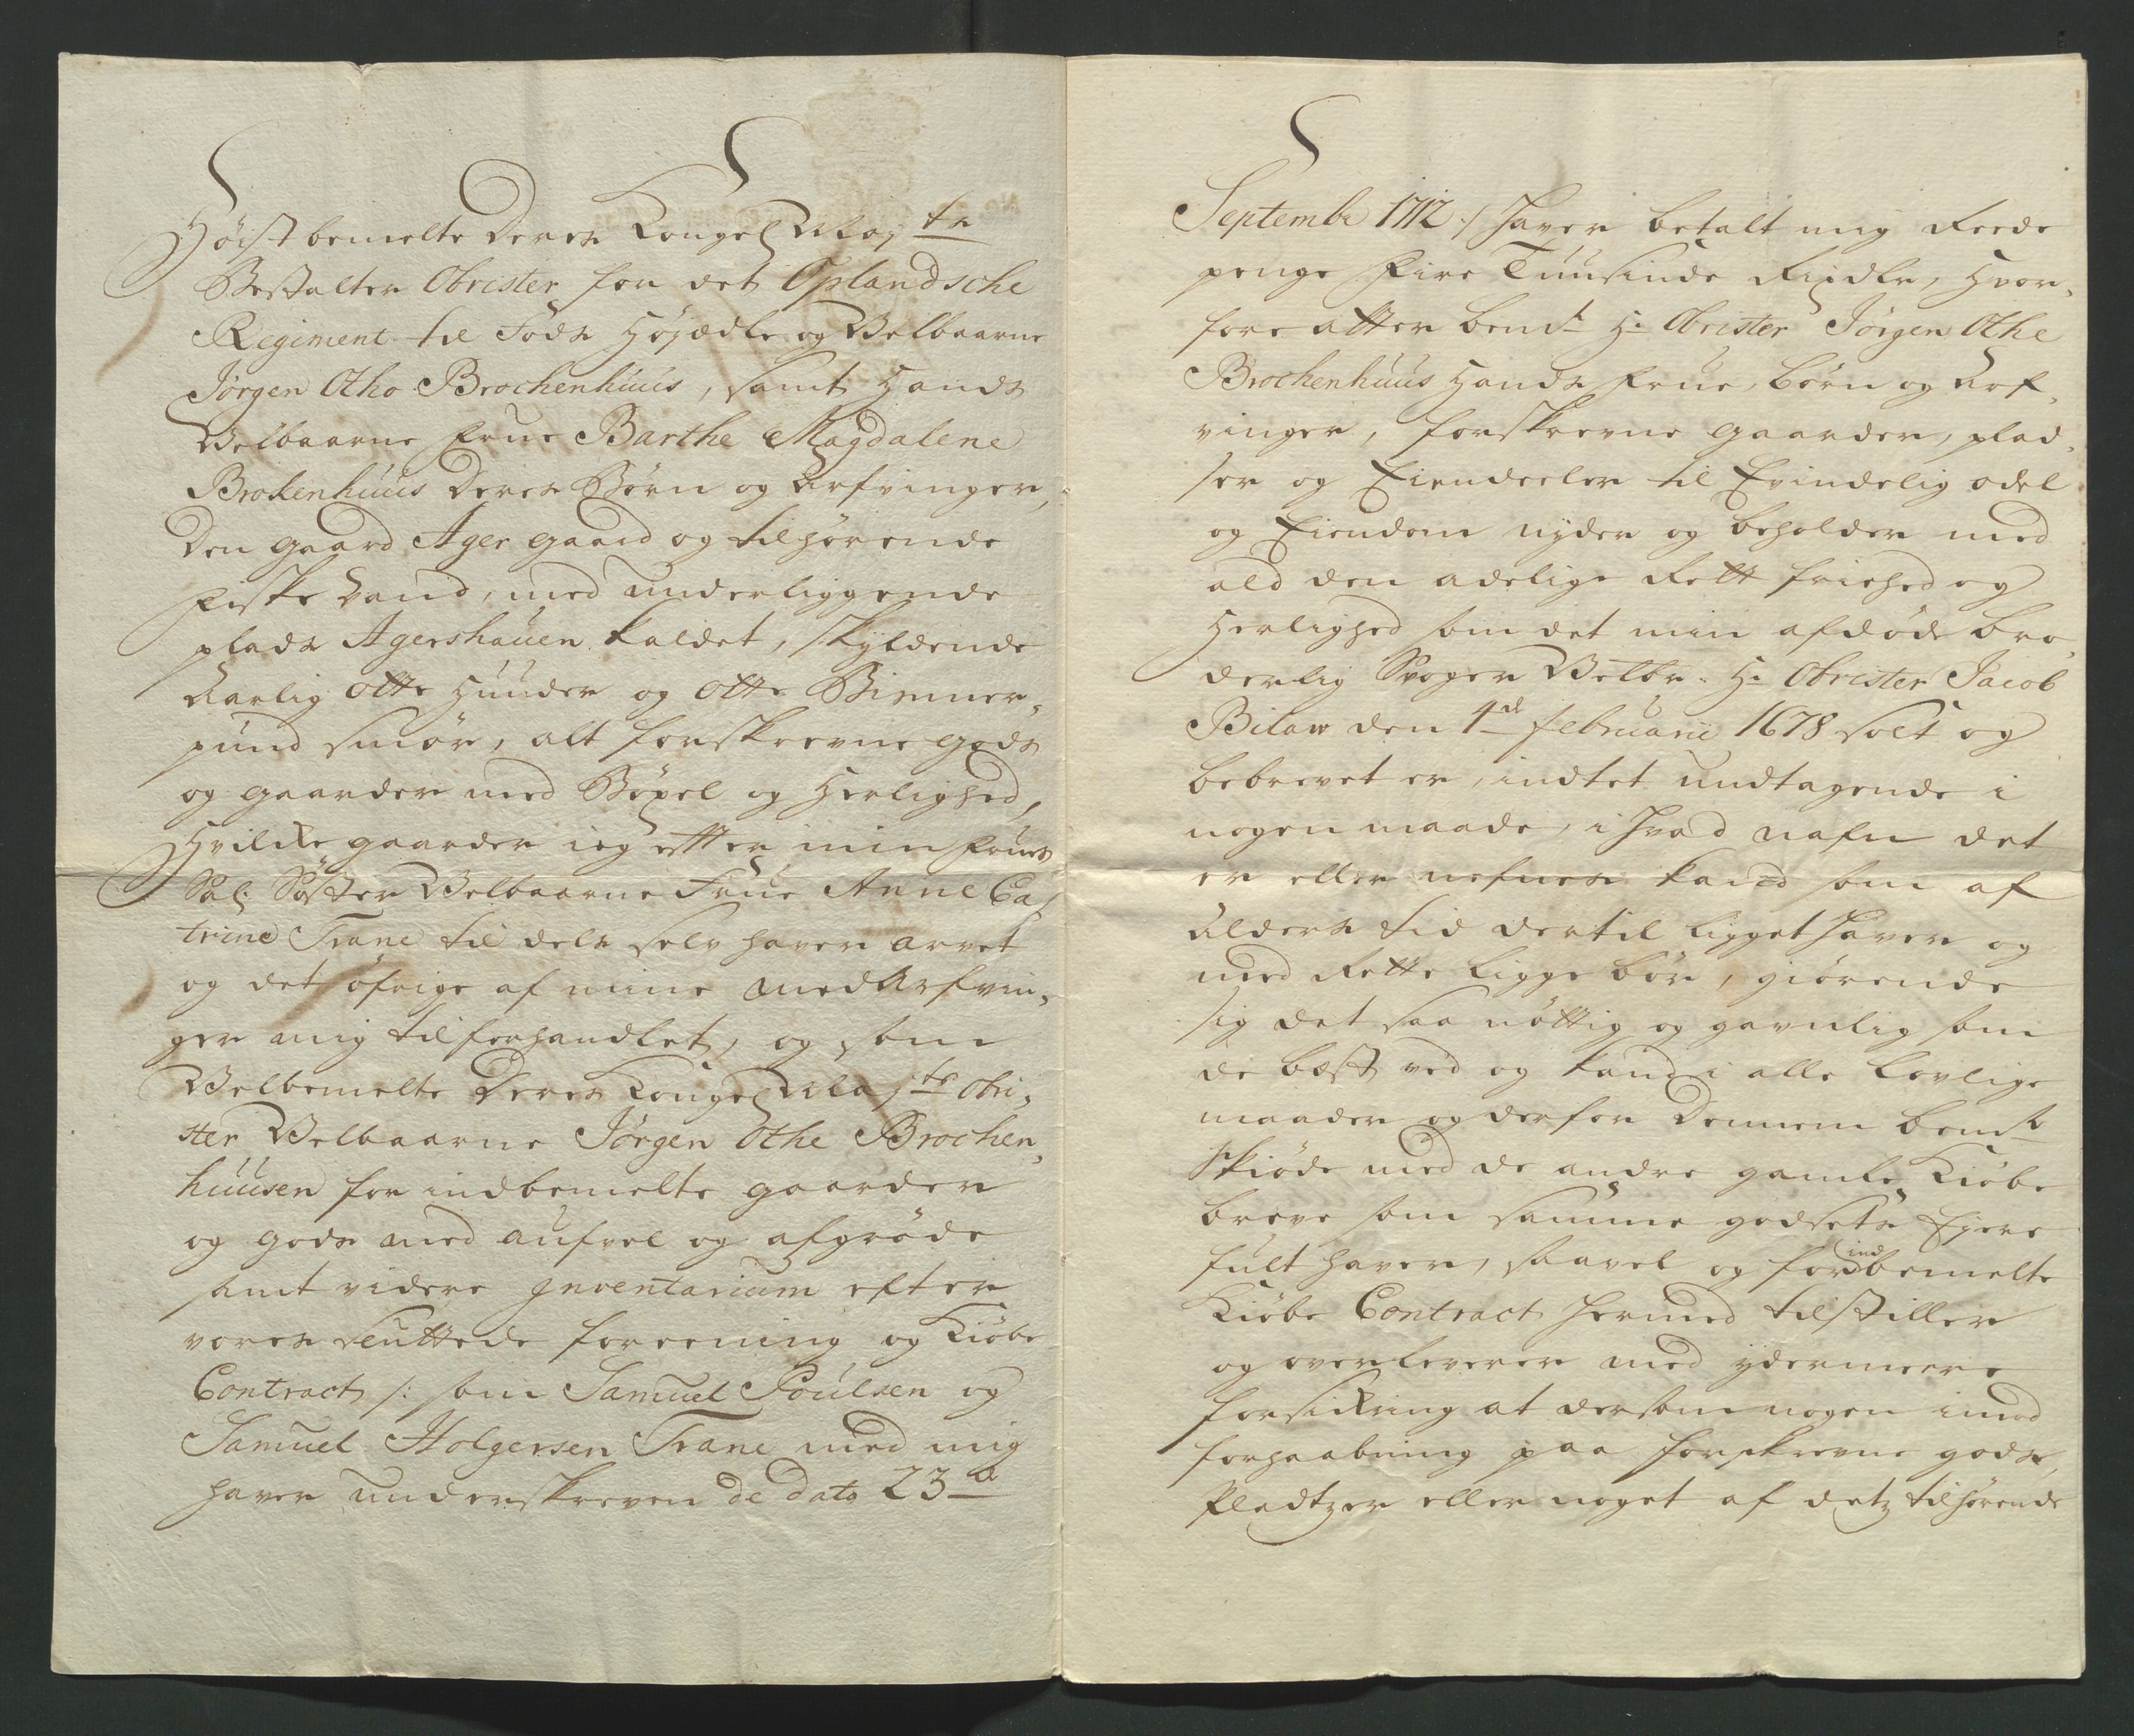 Höist bemelte Deres Kongel Maj tz
Bestalter Obrister for det Oplandsche
Regiment til Fods Höjædle og Velbaarne
Jörgen Otho Brochenhuus, samt Hands
Velbaarne Frue Barthe Magdalene
Brokenhuus Deres Börn og Arfvinger,
Den gaard Ager gaard og tilhörende
Fiske Vand, med underliggende
plads Agershauen kaldet, skyldende
Aarlig otte Huuder og otte Bismer,
pund smör, alt forskrevne gods
og gaarder med Böxel og Herlighed,
Hvilke gaarder ieg etter min Frues
Sal: Söster Velbaarne Frue Anne Ca,
trine Trane til dels selv haver arvet
og det öfrige af mine medArfvin,
ger mig tilforhandlet, og som
Velbemelte Deres Kongel Maj ts Obri,
ster Velbaarne Jörgen Othe Brochen,
huusen for indbemelte gaarder
og gods med aufvel og afgröde
samt videre Inventarium efter
vores sluttede foreening og Kiöbe
Contract /: som Samuel Poulsen og
Samuel Holgersen Trane med mig
haver underskreven de dato 23 d
Septembr 1712 :/ haver betalt mig Reede
penge Fire Tuusinde Rixdlr, Hvor,
fore atter bemt Hr Obrister Jörgen Othe
Brochenhuus Hands Frue, börn og Arf,
vinger, forskrevne gaarder, plad,
ser og Eiendeeler til Evindelig odel
og Eiendom nyder og beholder med
ald den adelige Rett friehed og
Herlighed som det min afdöde bro,
derlig Svoger Velbr. Hr Obrister Jacob
Bilaw den 1 d februarii 1678 solt og
bebrevet er, indtet undtagende i
nogen maade, i hvad nafn det
er eller nefnes kand som af
Alders tid dertil ligget haver og
med Rette ligge bör, giörende
sig det saa nöttig og gavnlig som
de best ved og kand i alle lovlige
maader og derfor Dennem bemt
Skiöde med de andre gamle Kiöbe
breve som samme godsets Ejere
fult haver, saavel og for ind bemelte
Kiöbe Contract hermed tilstiller
og overleverer med ydermeere
forsikring at dersom nogen imod
forhaabning paa forskrevne gods,
Pladtzer eller noget af detz tilhörende